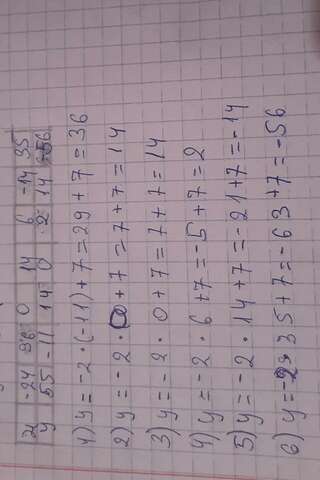 x -24 96 0 14 6 -14 35
y 55 -11 14 0 2 14 -56
1) y = -2 · (-11) + 7 = 29 + 7 = 36
2) y = -2 · 0 + 7 = 7 + 7 = 14
3) y = -2 · 0 + 7 = 7 + 7 = 14
4) y = -2 · 6 + 7 = -5 + 7 = 2
5) y = -2 · 14 + 7 = -21 + 7 = -14
6) y = -2 · 35 + 7 = -63 + 7 = -56